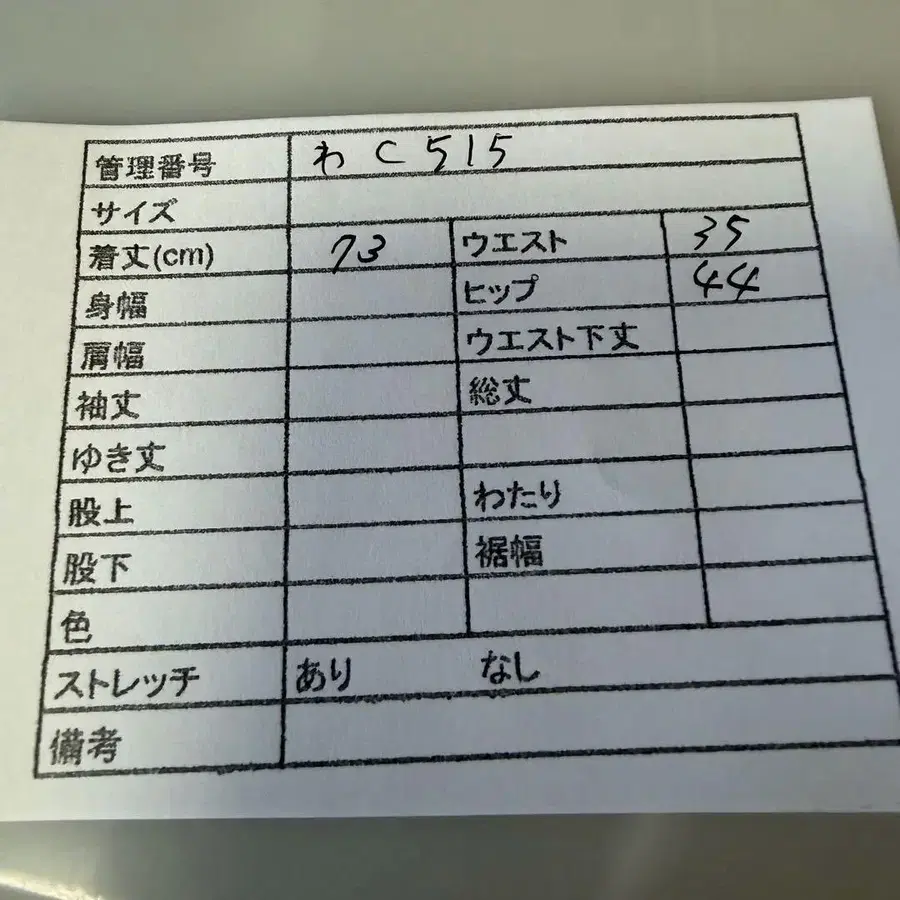 管理番号 わC515
サイズ
着丈(cm) 73 ウエスト 35
身幅 ヒップ 44
肩幅 ウエスト下丈
袖丈 総丈
ゆき丈
股上 わたり
股下 裾幅
色
ストレッチ あり なし
備考